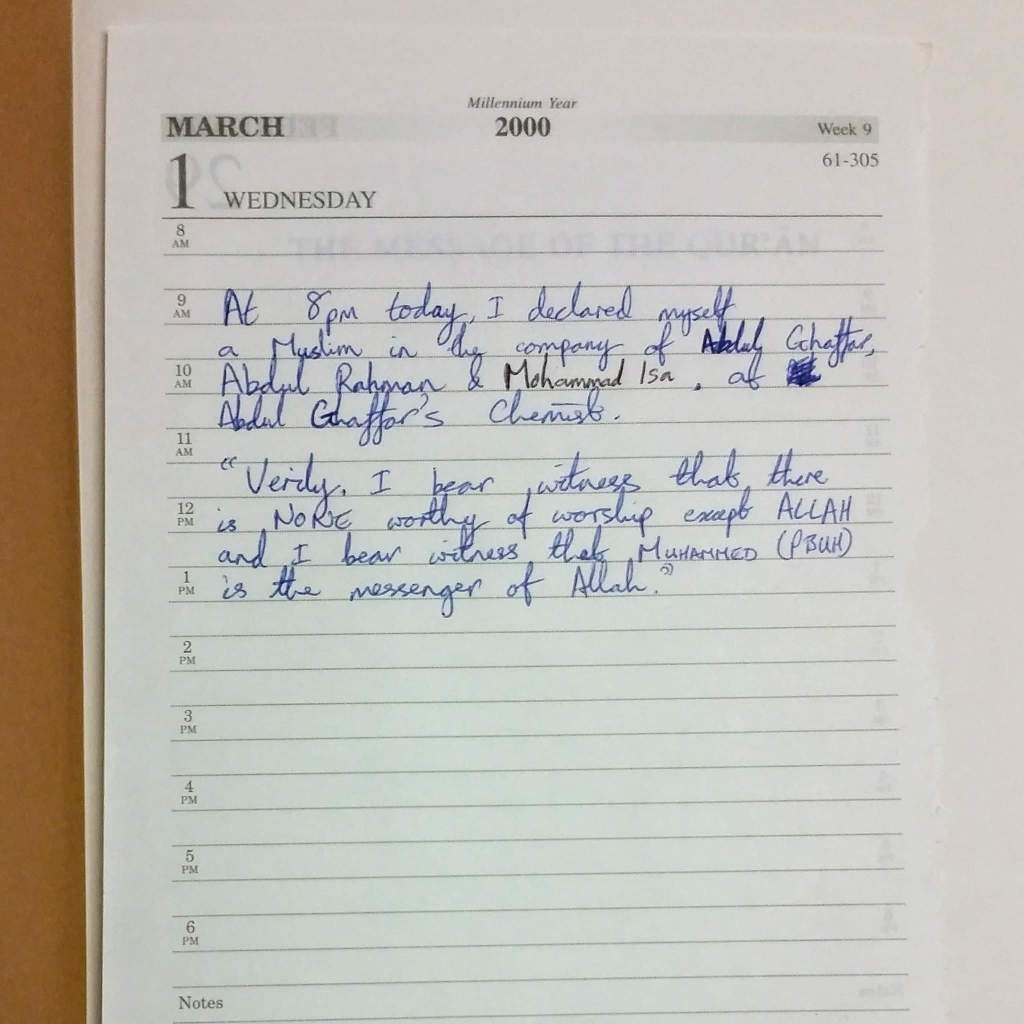 Millennium Year
MARCH 2000 Week 9
61-305
1 WEDNESDAY
8 AM
THE MESSAGE OF THE QUR'ĀN
9 AM
At 8pm today, I declared myself
a Muslim in the company of Abdul Ghaffar,
10 AM
Abdul Rahman & Mohammad Isa, at
Abdul Ghaffar's Chemist.
11 AM
"Verily, I bear witness that there
12 PM
is NONE worthy of worship except ALLAH
and I bear witness that MUHAMMED (PBUH)
1 PM
is the messenger of Allah."
2 PM
3 PM
4 PM
5 PM
6 PM
Notes